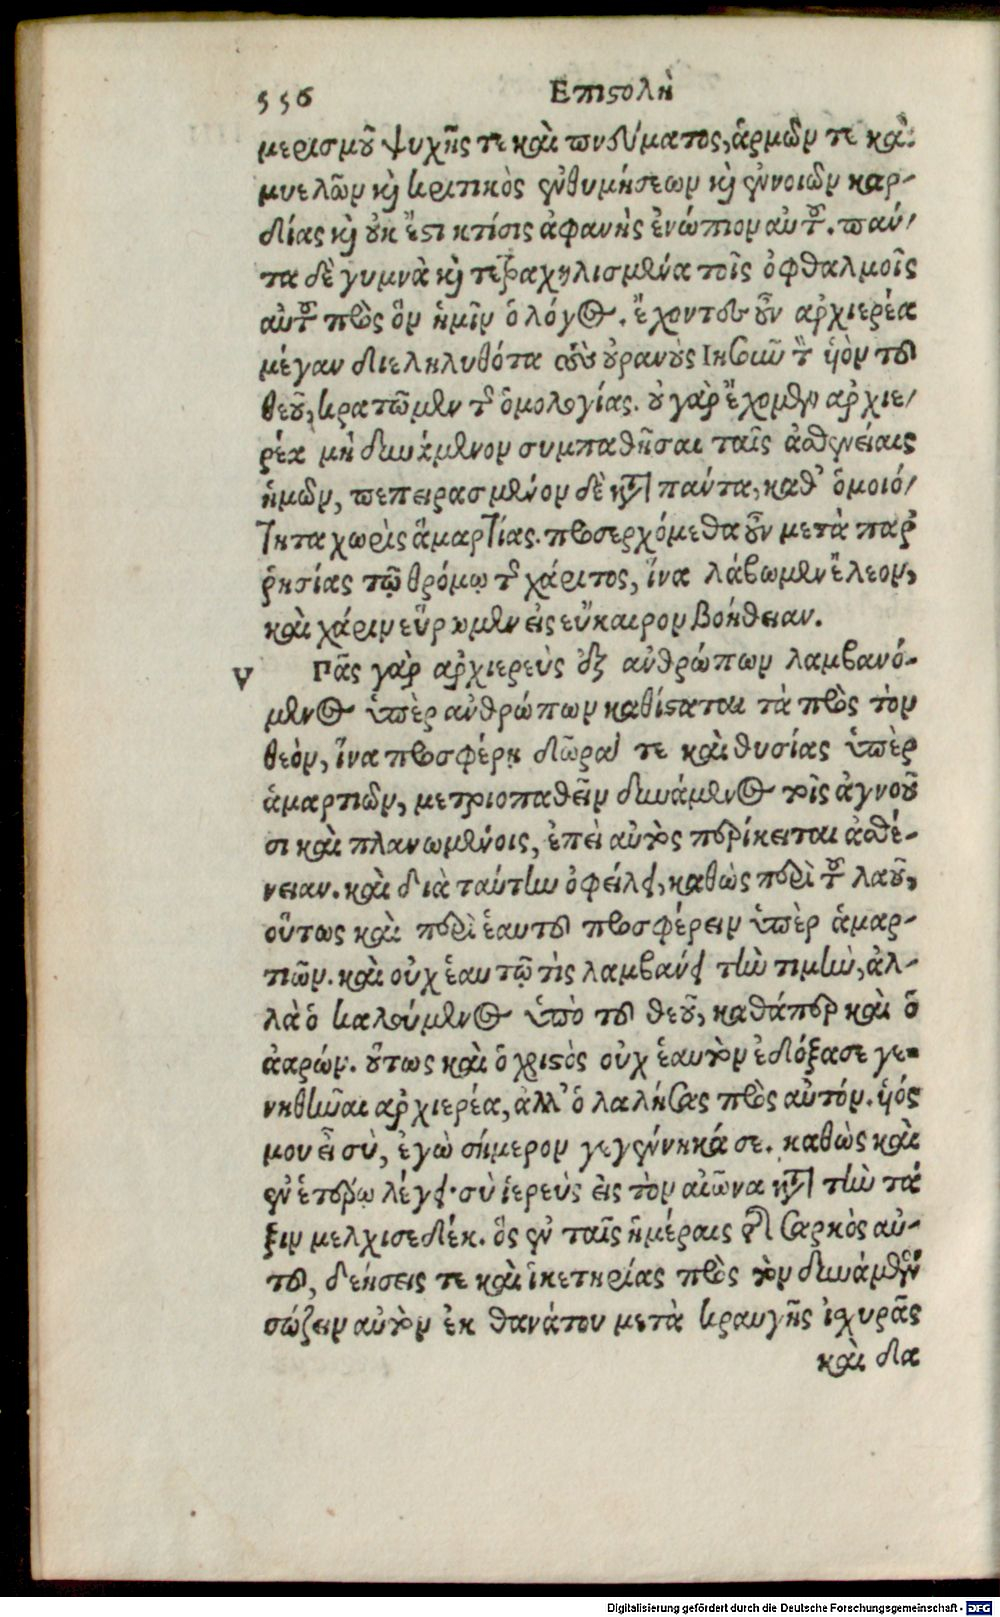 556 Επιϛολὴ
μερισμοῦ ψυχῆς τε καὶ πνεύματος, ἁρμῶν τε καὶ
μυελῶν καὶ κριτικὸς ἐνθυμήσεων καὶ ἐννοιῶν καρ-
δίας καὶ οὐκ ἔϛι κτίσις ἀφανὴς ἐνώπιον αὐτοῦ. παν/
τα δὲ γυμνὰ καὶ τετραχηλισμένα τοῖς ὀφθαλμοῖς
αὐτοῦ πρὸς ὃν ἡμῖν ὁ λόγος. ἔχοντες οὖν ἀρχιερέα
μέγαν διεληλυθότα τοὺς οὐρανοὺς Ιησοῦν τὸν ὑὸν τοῦ
θεοῦ, κρατῶμεν τῆς ὁμολογίας. οὐ γὰρ ἔχομεν ἀρχιε/
ρέα μὴ δυνάμενον συμπαθῆσαι ταῖς ἀσθενείαις
ἡμῶν, πεπειρασμένον δὲ κατὰ πάντα, καθ' ὁμοιό/
τητα χωρὶς ἁμαρτίας. προσερχόμεθα οὖν μετὰ παρ
ῥησίας τῷ θρόνῳ τῆς χάριτος, ἵνα λάβωμεν ἔλεον,
καὶ χάριν εὕρωμεν εἰς εὔκαιρον βοήθειαν.
V Πᾶς γὰρ ἀρχιερεὺς ἐξ ἀνθρώπων λαμβανό-
μενος ὑπὲρ ἀνθρώπων καθίϛαται τὰ πρὸς τὸν
θεὸν, ἵνα προσφέρῃ δῶρα τε καὶ θυσίας ὑπὲρ
ἁμαρτιῶν, μετριοπαθεῖν δυνάμενος τοῖς ἀγνοοῦ
σι καὶ πλανωμένοις, ἐπεὶ αὐτὸς περίκειται ἀσθέ-
νειαν. καὶ διὰ ταύτην ὀφείλει, καθὼς περὶ τοῦ λαοῦ,
οὕτως καὶ περὶ ἑαυτοῦ προσφέρειν ὑπὲρ ἁμαρ-
τιῶν. καὶ οὐχ ἑαυτῷ τὶς λαμβάνει τὴν τιμὴν, ἀλ-
λὰ ὁ καλούμενος ὑπὸ τοῦ θεοῦ, καθάπερ καὶ ὁ
ἀαρών. οὕτως καὶ ὁ χριϛὸς οὐχ ἑαυτὸν ἐδόξασε γε-
νηθῆναι ἀρχιερέα, ἀλλ' ὁ λαλήσας πρὸς αὐτόν. ὑός
μου εἶ σὺ, ἐγὼ σήμερον γεγέννηκά σε. καθὼς καὶ
ἐν ἑτέρῳ λέγει· σὺ ἱερεὺς εἰς τὸν αἰῶνα κατὰ τὴν τά
ξιν μελχισεδέκ. ὃς ἐν ταῖς ἡμέραις τῆς σαρκὸς αὐ-
τοῦ, δεήσεις τε καὶ ἱκετηρίας πρὸς τὸν δυνάμενον
σώζειν αὐτὸν ἐκ θανάτου μετὰ κραυγῆς ἰχυρᾶς
καὶ δα
Digitalisierung gefördert durch die Deutsche Forschungsgemeinschaft - DFG